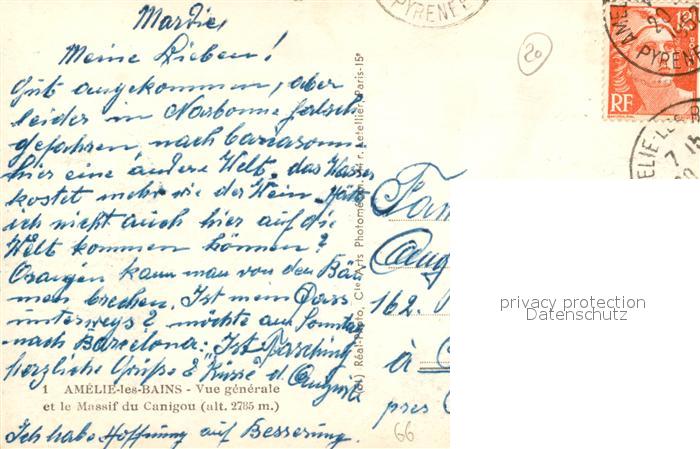 Mardi
Meine Lieben!
Gut angekommen, aber
leider in Narbonne falsch
gefahren, nach Carcasonne
hier eine andere Welt, das Wasser
kostet mehr wie der Wein. Hätt
ich nicht auch hier auf die
Welt kommen können?
Orangen kann man von den Bäu
men brechen. Ist mein Pass
unterwegs? möchte am Sonntag
nach Barcelona: Ist Fasching
herzliche Grüße & Küsse
1 AMÉLIE-les-BAINS - Vue générale
et le Massif du Canigou (alt. 2785 m.)
Ich habe Hoffnung auf Besserung.
(ol) Réal-Photo, Cie Arts Photomécan. r. Letellier, Paris-15e
20
PYRENE
AMEL
PYRENE
RF
ELIE-LES-B
7 15
Fam
Aug
162.
à
pres
66
privacy protection
Datenschutz